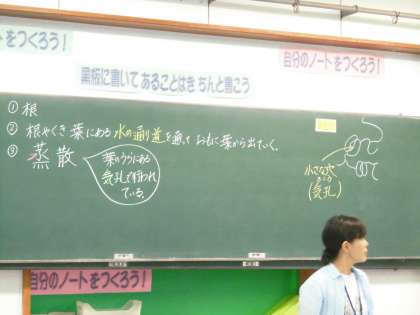 トをつくろう!
自分のノートをつくろう!
黒板に書いてあることはきちんと書こう
①根
②根やくき、葉にある水の通り道を通って、おもに葉から出ていく。
③蒸散
葉のうらにある
気孔で行われ
ている。
小さな穴
(気孔)
自分のノートをつくろう!